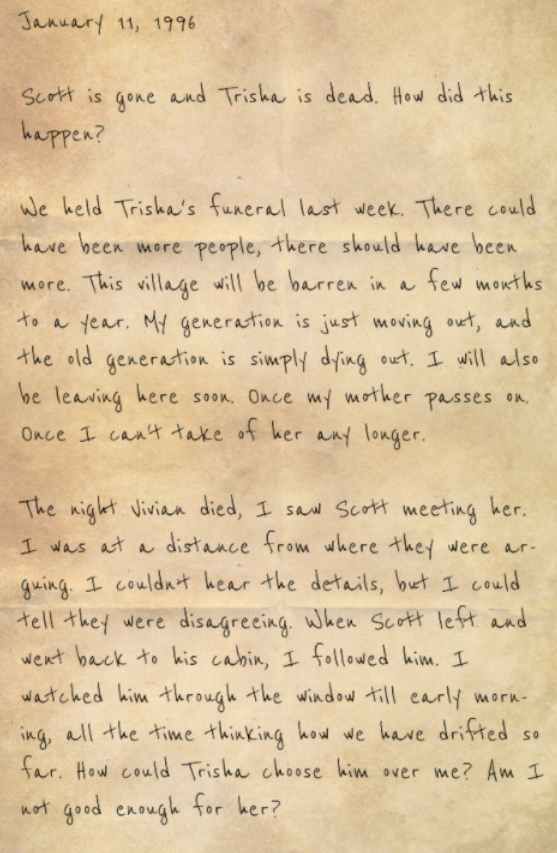 January 11, 1996
Scott is gone and Trisha is dead. How did this
happen?
We held Trisha's funeral last week. There could
have been more people, there should have been
more. This village will be barren in a few months
to a year. My generation is just moving out, and
the old generation is simply dying out. I will also
be leaving here soon. Once my mother passes on.
Once I can't take of her any longer.
The night Vivian died, I saw Scott meeting her.
I was at a distance from where they were ar-
guing. I couldn't hear the details, but I could
tell they were disagreeing. When Scott left and
went back to his cabin, I followed him. I
watched him through the window till early morn-
ing, all the time thinking how we have drifted so
far. How could Trisha choose him over me? Am I
not good enough for her?